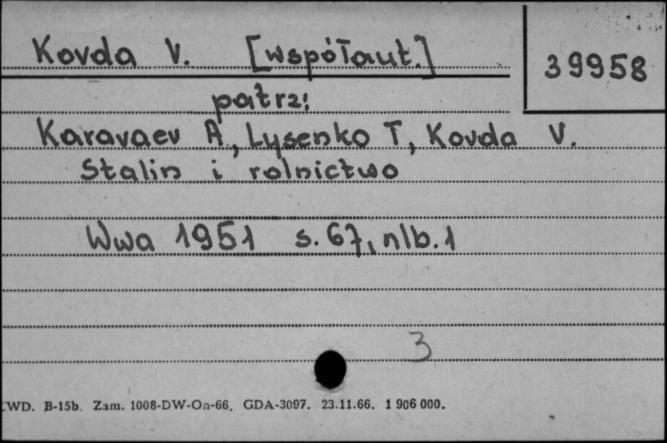 Kovda V. [współaut.]
39958
patrz:
Karavaev A, Lysenko T, Kovda V.
Stalin i rolnictwo
Wwa 1951 s. 67, nlb. 1
3
WD. B-15b. Zam. 1008-DW-On-66. GDA-3097. 23.11.66. 1 906 000.